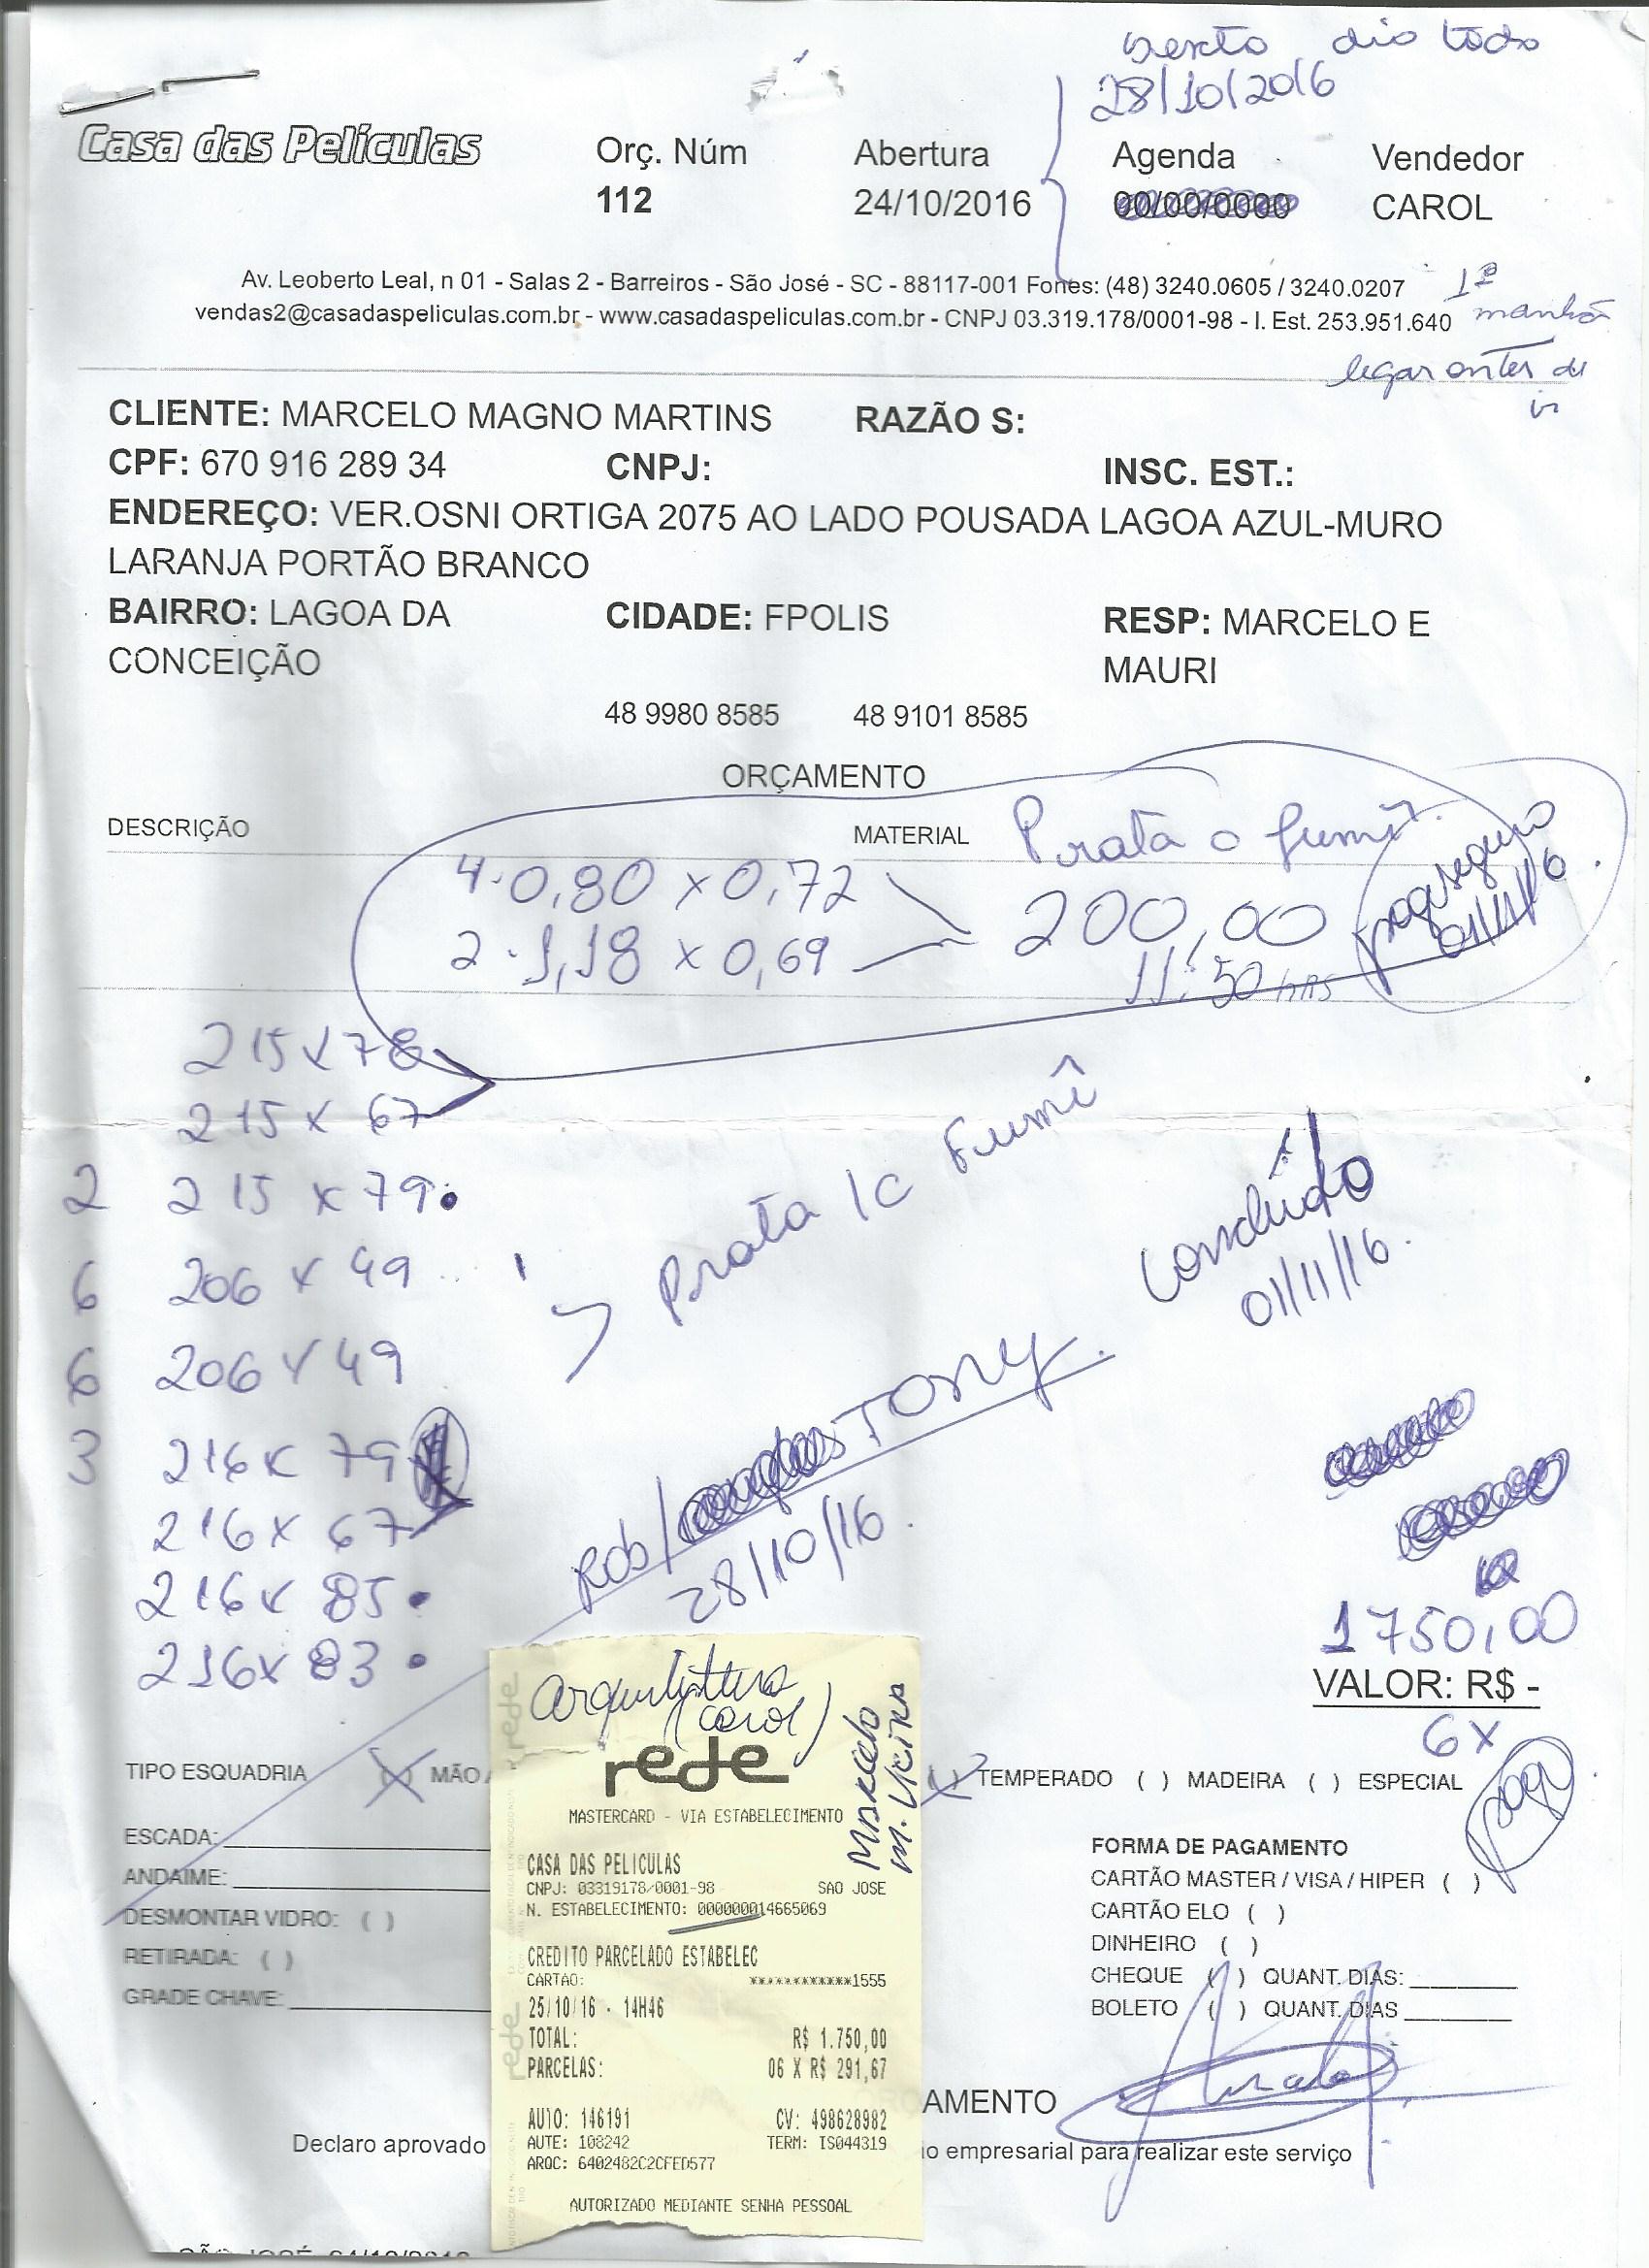 dia todo
28/10/2016
Casa das Películas
Orç. Núm Abertura Agenda Vendedor
112 24/10/2016 00/00/0000 CAROL
Av. Leoberto Leal, n 01 - Salas 2 - Barreiros - São José - SC - 88117-001 Fones: (48) 3240.0605 / 3240.0207
vendas2@casadaspeliculas.com.br - www.casadaspeliculas.com.br - CNPJ 03.319.178/0001-98 - I. Est. 253.951.640
1ª
manhã
ligar antes de
ir
CLIENTE: MARCELO MAGNO MARTINS RAZÃO S:
CPF: 670 916 289 34 CNPJ: INSC. EST.:
ENDEREÇO: VER.OSNI ORTIGA 2075 AO LADO POUSADA LAGOA AZUL-MURO
LARANJA PORTÃO BRANCO
BAIRRO: LAGOA DA CIDADE: FPOLIS RESP: MARCELO E
CONCEIÇÃO MAURI
48 9980 8585 48 9101 8585
ORÇAMENTO
DESCRIÇÃO MATERIAL Prata fumê
4. 0,80 x 0,72
2. 1,18 x 0,69 200,00
11:50 hrs
pagseguro
01/11/16
215 x 78
215 x 67
2 215 x 79
6 206 x 49
6 206 x 49
3 216 x 79
216 x 67
216 x 85
216 x 83
Prata /c Fumê
Concluído
01/11/16.
Rob/ Tony.
28/10/16.
1750,00
VALOR: R$ -
6x
pago
TIPO ESQUADRIA ( ) MÃO ( ) TEMPERADO ( ) MADEIRA ( ) ESPECIAL
ESCADA:
ANDAIME:
DESMONTAR VIDRO: ( )
RETIRADA: ( )
GRADE CHAVE:
FORMA DE PAGAMENTO
CARTÃO MASTER / VISA / HIPER ( )
CARTÃO ELO ( )
DINHEIRO ( )
CHEQUE ( ) QUANT. DIAS:
BOLETO ( ) QUANT. DIAS
(carol)
Marcelo
rede
MASTERCARD - VIA ESTABELECIMENTO
CASA DAS PELICULAS
CNPJ: 03319178/0001-98 SAO JOSE
N. ESTABELECIMENTO: 000000014665069
CREDITO PARCELADO ESTABELEC
CARTAO: ************1555
25/10/16 - 14H46
TOTAL: R$ 1.750,00
PARCELAS: 06 X R$ 291,67
AUTO: 146191 CV: 498628982
AUTE: 108242 TERM: IS044319
ARQC: 6402482C2CFED577
AUTORIZADO MEDIANTE SENHA PESSOAL
AMENTO
Declaro aprovado io empresarial para realizar este serviço